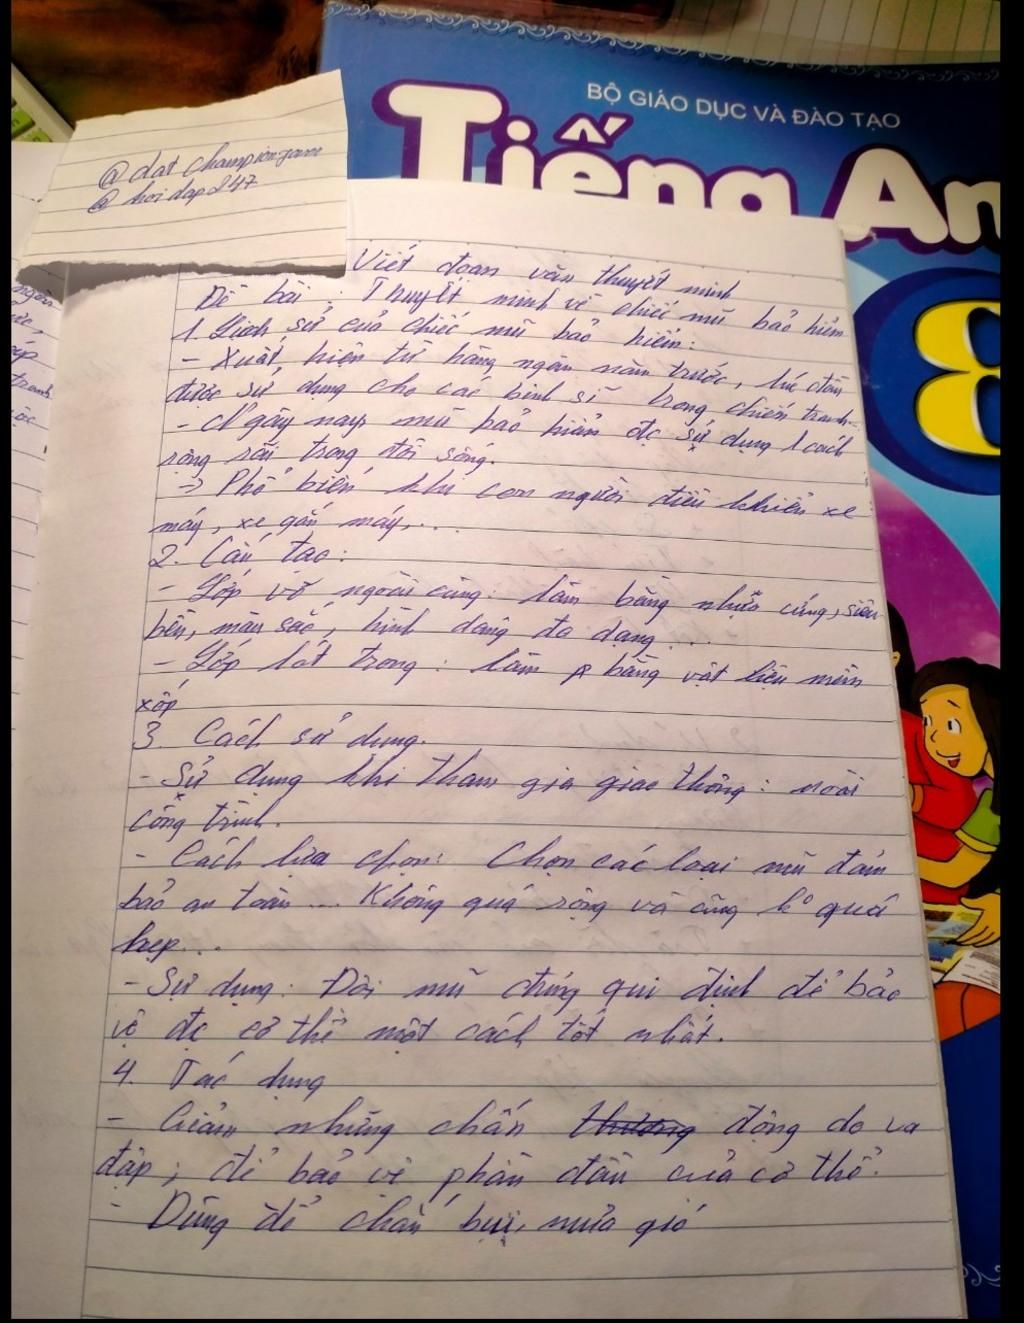 BỘ GIÁO DỤC VÀ ĐÀO TẠO
Tiếng An
8
@dat championzone
@hoidap247
Viết đoạn văn thuyết minh
Đề bài : Thuyết minh về chiếc mũ bảo hiểm
1. Lịch sử của chiếc mũ bảo hiểm:
- Xuất hiện từ hàng ngàn năm trước, lúc đầu
được sử dụng cho các binh sĩ trong chiến tranh..
- Ngày nay mũ bảo hiểm đc sử dụng 1 cách
rộng rãi trong đời sống.
=> Phổ biến khi con người điều khiển xe
máy, xe gắn máy,...
2. Cấu tạo:
- Lớp vỏ ngoài cùng: làm bằng nhựa cứng, siêu
bền, màu sắc, hình dạng đa dạng...
- Lớp lót trong: làm bằng vật liệu mềm
xốp
3. Cách sử dụng.
- Sử dụng khi tham gia giao thông:
công trình.
- Cách lựa chọn: Chọn các loại mũ đảm
bảo an toàn ... Không quá rộng và cũng ko quá
hẹp...
- Sử dụng: Đội mũ đúng qui định để bảo
vệ đc cơ thể một cách tốt nhất.
4. Tác dụng
- Giảm những chấn thương động do va
đập; để bảo vệ phần đầu của cơ thể.
- Dùng để chắn bụi, mưa gió